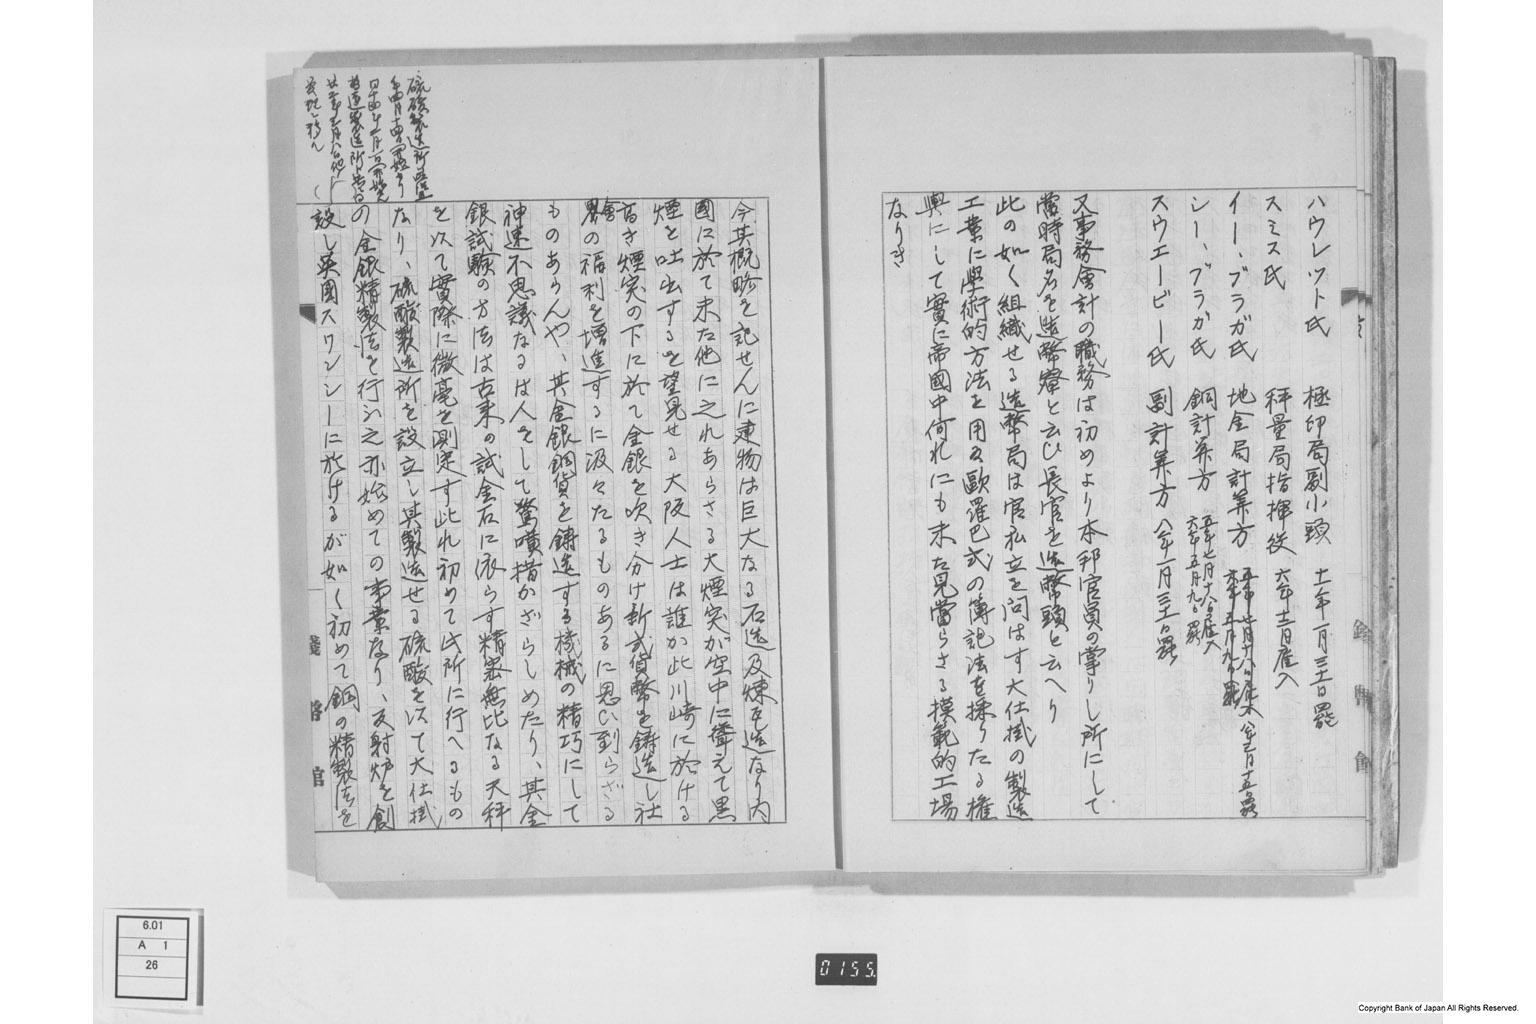 ハウレツト氏 極印局副小頭 十一年一月三十一日罷
スミス氏 秤量局指揮役 六年十二月雇入
イー、ブラガ氏 地金局計算方
シー、ブラガ氏 銅計算方 五年七月十八日雇入 六年五月九日罷
スウエービー氏 副計算方 八年一月三十一日罷
又事務會計の職務は初めより本邦官員の掌りし所にして
當時局名を造幣寮と云ひ長官を造幣頭と云へり
此の如く組織せる造幣局は官私立を问はす大仕掛の製造
工業に學術的方法を用ゐ歐羅巴式の簿記法を採りたる権
輿にして實に帝國中何れにも未た見當らさる模範的工場
なりき
硫酸製造所
今其概略を記せんに建物は巨大なる石造及煉瓦造なり内
國に於て未た他に之れあらさる大煙突が空中に聳えて黒
煙を吐出するを望見せる大阪人士は誰か此川崎に於ける
高き煙突の下に於て金銀を吹き分け新式貨幣を鋳造し社
會の福利を増進するに汲々たるものあるに思ひ到らざる
ものあらんや、其金銀銅貨を鋳造する機械の精巧にして
神速不思議なるは人をして驚嘆措かざらしめたり、其金
銀試験の方法は古来の試金石に依らす精密無比なる天秤
を以て實際に微毫を測定す此れ初めて此所に行へるもの
なり、硫酸製造所を設立し其製造せる硫酸を以て大仕掛
の金銀精製法を行ひ之亦始めての事業なり、反射炉を創
設し英國スワンシーに於けるが如く初めて銅の精製法を
6.01
A 1
26
0155
Copyright Bank of Japan All Rights Reserved.